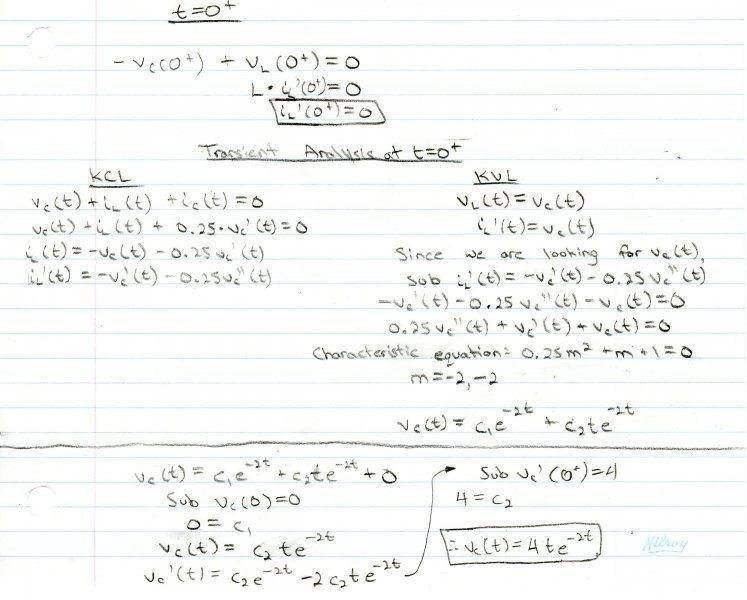 t=0⁺
-v_c(0⁺) + v_L(0⁺)=0
L·i_L'(0⁺)=0
i_L'(0⁺)=0
Transient Analysis at t=0⁺
KCL
v_c(t)+i_L(t)+i_c(t)=0
v_c(t)+i_L(t)+0.25·v_c'(t)=0
i_L(t)=-v_c(t)-0.25v_c'(t)
i_L'(t)=-v_c'(t)-0.25v_c''(t)
KVL
v_L(t)=v_c(t)
i_L'(t)=v_c(t)
Since we are looking for v_c(t),
sub i_L'(t)=-v_c'(t)-0.25v_c''(t)
-v_c'(t)-0.25v_c''(t)-v_c(t)=0
0.25v_c''(t)+v_c'(t)+v_c(t)=0
Characteristic equation: 0.25m²+m+1=0
m=-2,-2
v_c(t)= c₁e^-2t + c₂te^-2t
v_c(t)= c₁e^-2t + c₂te^-2t + 0
Sub v_c(0)=0
0=c₁
v_c(t)= c₂te^-2t
v_c'(t)= c₂e^-2t - 2c₂te^-2t
Sub v_c'(0⁺)=4
4=c₂
∴v_c(t)=4te^-2t